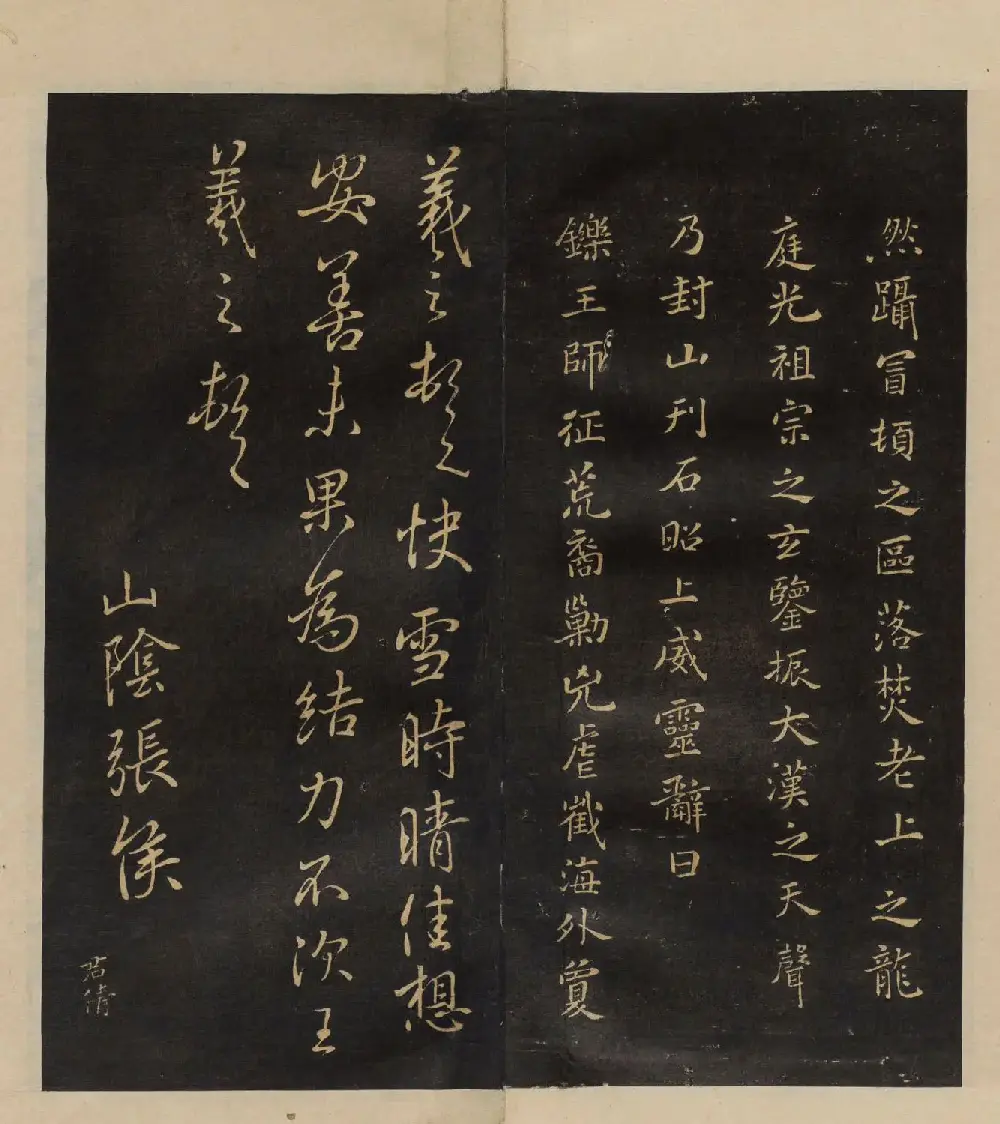 然躡冒頓之區落焚老上之龍
庭光祖宗之玄鑒振大漢之天聲
乃封山刊石昭上威靈辭曰
鑠王師征荒裔勦兇虐截海外敻
羲之頓首快雪時晴佳想
安善未果為結力不次王
羲之頓首
山陰張侯
君倩